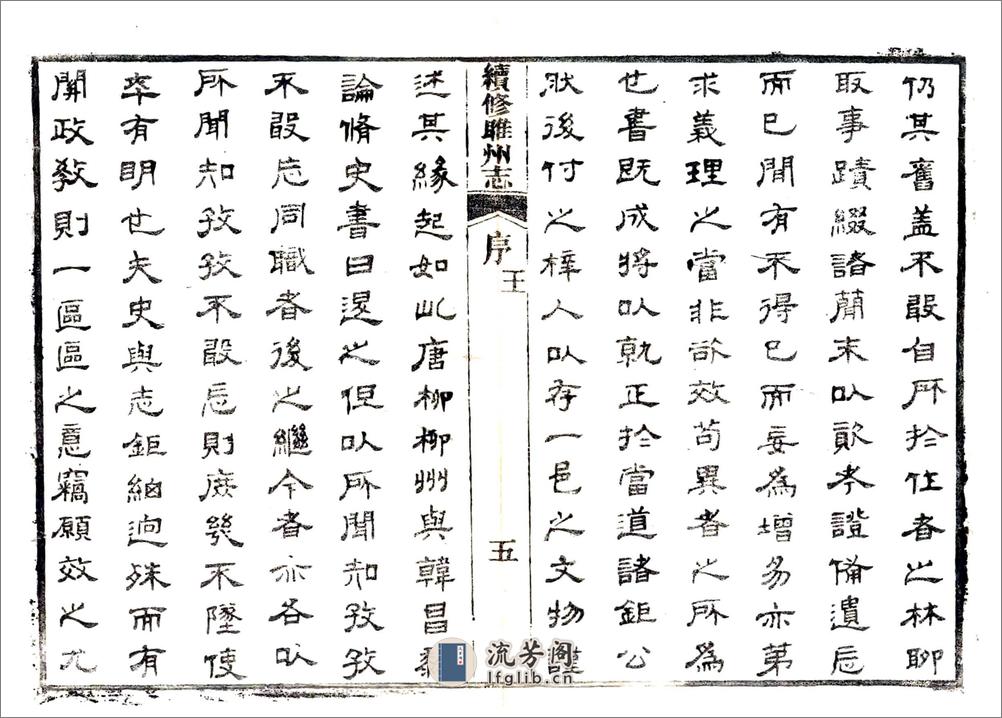 仍其舊盖不敢自所於作者之林聊
取事蹟綴諸簡末以資考證備遺忘
而已間有不得已而妄為增易亦第
求義理之當非欲效苟異者之所為
也書既成將以就正於當道諸鉅公
然後付之梓人以存一邑之文物謹
續修睢州志
序
王
五
述其緣起如此唐柳柳州與韓昌黎
論脩史書曰退之但以所聞知孜孜
不敢忘同職者後之繼今者亦各以
所聞知孜孜不敢忘則庶幾不墜使
卒有明也夫史與志鉅細逈殊而有
關政教則一區區之意竊願效之尤
流芳阁
lfglib.cn